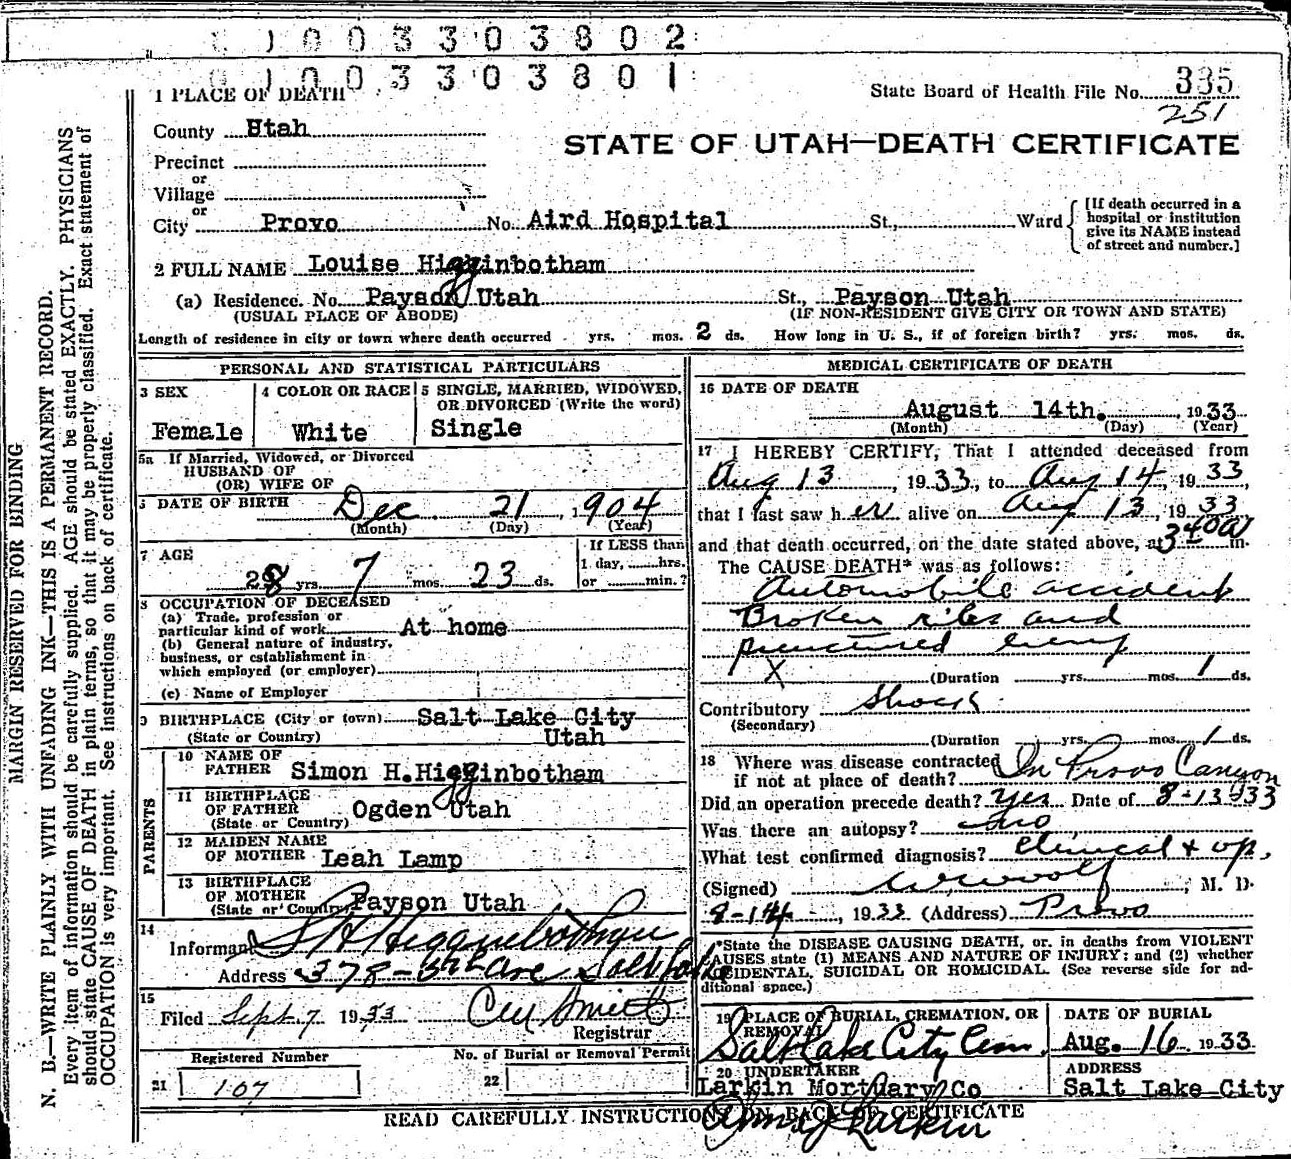 1003303802
1003303801
1 PLACE OF DEATH
State Board of Health File No. 335
251
County Utah
STATE OF UTAH—DEATH CERTIFICATE
Precinct
or
Village
or
City Provo No. Aird Hospital St., Ward
[If death occurred in a hospital or institution give its NAME instead of street and number.]
2 FULL NAME Louise Higginbotham
(a) Residence. No. Payson Utah St., Payson Utah
(USUAL PLACE OF ABODE) (IF NON-RESIDENT GIVE CITY OR TOWN AND STATE)
Length of residence in city or town where death occurred yrs. mos. 2 ds. How long in U. S., if of foreign birth? yrs. mos. ds.
PERSONAL AND STATISTICAL PARTICULARS
3 SEX 4 COLOR OR RACE 5 SINGLE, MARRIED, WIDOWED, OR DIVORCED (Write the word)
Female White Single
5a If Married, Widowed, or Divorced
HUSBAND OF
(OR) WIFE OF
DATE OF BIRTH Dec 21, 1904
(Month) (Day) (Year)
7 AGE
28 yrs. 7 mos. 23 ds.
If LESS than
1 day, hrs.
or min.?
8 OCCUPATION OF DECEASED
(a) Trade, profession or
particular kind of work At home
(b) General nature of industry,
business, or establishment in
which employed (or employer)
(c) Name of Employer
9 BIRTHPLACE (City or town) Salt Lake City
(State or Country) Utah
PARENTS
10 NAME OF
FATHER Simon H. Higginbotham
11 BIRTHPLACE
OF FATHER Ogden Utah
(State or Country)
12 MAIDEN NAME
OF MOTHER Leah Lamp
13 BIRTHPLACE
OF MOTHER
(State or Country) Payson Utah
14
Informant S H Higginbotham
Address 378-3rd Ave Salt Lake
15
Filed Sept. 7 1933
Registrar
Registered Number No. of Burial or Removal Permit
21 107 22
MEDICAL CERTIFICATE OF DEATH
16 DATE OF DEATH
August 14th. , 1933
(Month) (Day) (Year)
17 I HEREBY CERTIFY, That I attended deceased from
Aug 13, 1933, to Aug 14, 1933,
that I last saw her alive on Aug 13, 1933
and that death occurred, on the date stated above, at 340a m.
The CAUSE DEATH* was as follows:
Automobile accident
Broken ribs and
punctured lung
X (Duration yrs. mos. 1 ds.
Contributory Shock
(Secondary)
(Duration yrs. mos. 1 ds.
18 Where was disease contracted
if not at place of death? In Provo Canyon
Did an operation precede death? Yes Date of 8-13-33
Was there an autopsy? no
What test confirmed diagnosis? Clinical & op.
(Signed) M. D.
8-14, 1933 (Address) Provo
*State the DISEASE CAUSING DEATH, or. in deaths from VIOLENT
CAUSES state (1) MEANS AND NATURE OF INJURY: and (2) whether
ACCIDENTAL, SUICIDAL OR HOMICIDAL. (See reverse side for ad-
ditional space.)
19 PLACE OF BURIAL, CREMATION, OR REMOVAL DATE OF BURIAL
Salt Lake City Cem. Aug. 16 1933.
20 UNDERTAKER ADDRESS
Larkin Mortuary Co Salt Lake City
READ CAREFULLY INSTRUCTIONS ON BACK OF CERTIFICATE
MARGIN RESERVED FOR BINDING
N. B.—WRITE PLAINLY WITH UNFADING INK—THIS IS A PERMANENT RECORD.
Every item of information should be carefully supplied. AGE should be stated EXACTLY. PHYSICIANS
should state CAUSE OF DEATH in plain terms, so that it may be properly classified. Exact statement of
OCCUPATION is very important. See instructions on back of certificate.